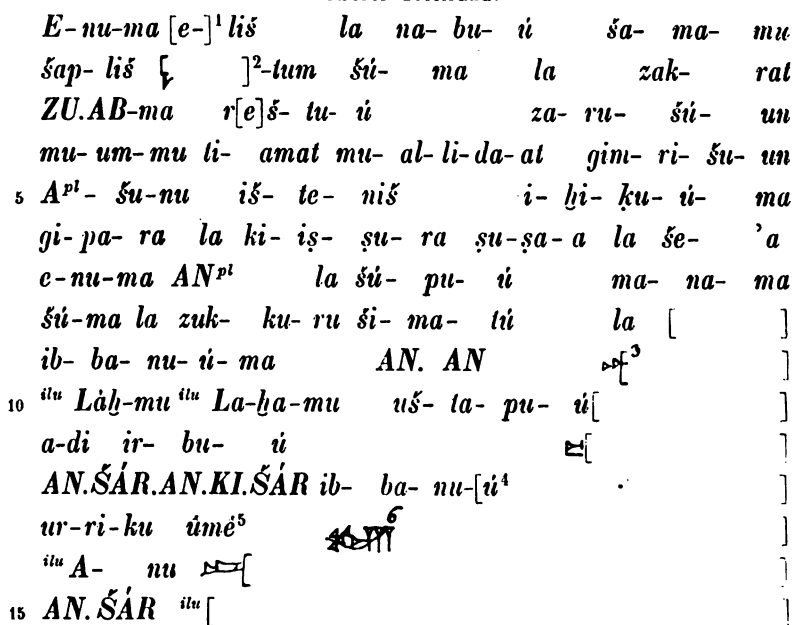 E-nu-ma [e-]¹ liš la na-bu-ú ša-ma-mu
šap-liš [ ]²-tum šú-ma la zak-rat
ZU.AB-ma r[e]š-tu-ú za-ru-šú-un
mu-um-mu ti-amat mu-al-li-da-at gim-ri-šu-un
5 Aᵖˡ-šu-nu iš-te-niš i-ḫi-ḳu-ú-ma
gi-pa-ra la ki-iṣ-ṣu-ra ṣu-ṣa-a la še-'a
e-nu-ma ANᵖˡ la šú-pu-ú ma-na-ma
šú-ma la zuk-ku-ru ši-ma-tú la [ ]
ib-ba-nu-ú-ma AN. AN [³ ]
10 ⁱˡᵘ Làḫ-mu ⁱˡᵘ La-ḫa-mu uš-ta-pu-ú[ ]
a-di ir-bu-ú [ ]
AN.ŠÁR.AN.KI.ŠÁR ib-ba-nu-[ú⁴ ]
ur-ri-ku úmé⁵ ⁶ ]
ⁱˡᵘ A-nu [ ]
15 AN.ŠÁR ⁱˡᵘ [ ]